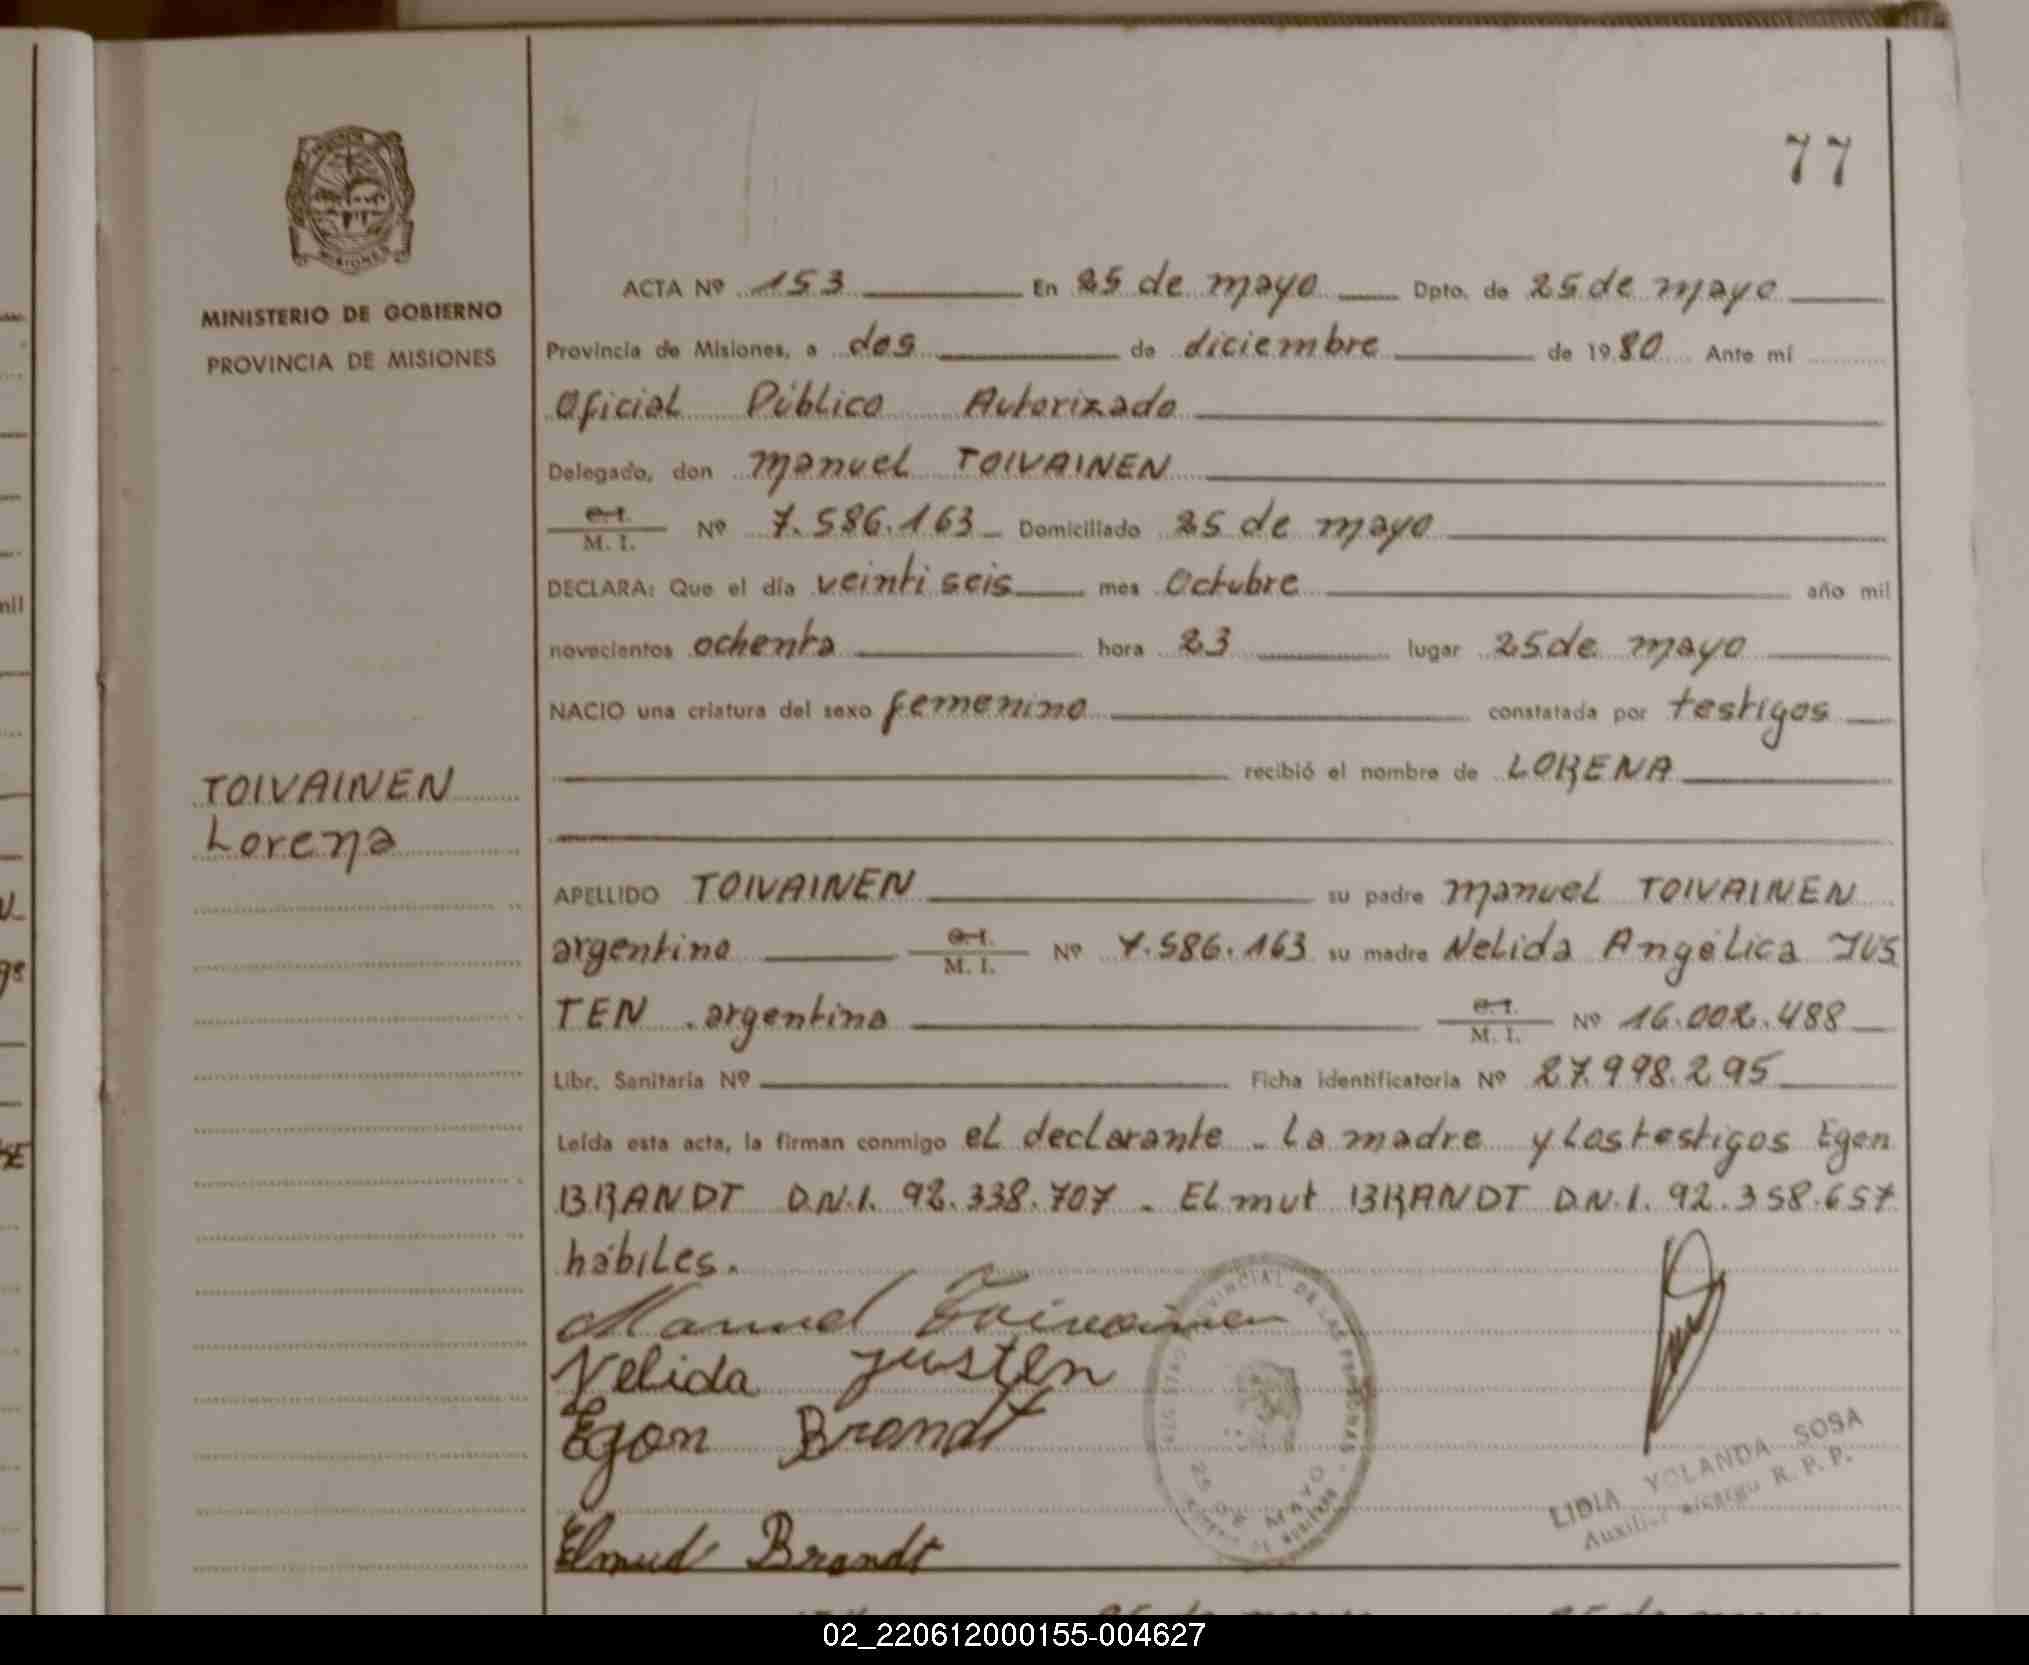 77
MINISTERIO DE GOBIERNO
PROVINCIA DE MISIONES
TOIVAINEN
Lorena
ACTA Nº 153 En 25 de mayo Dpto. de 25 de mayo
Provincia de Misiones, a dos de diciembre de 1980 Ante mí
Oficial Público Autorizado
Delegado, don Manuel TOIVAINEN
C.I. M. I. Nº 7.586.163 Domiciliado 25 de mayo
DECLARA: Que el día veinti seis mes Octubre año mil
novecientos ochenta hora 23 lugar 25 de mayo
NACIO una criatura del sexo femenino constatada por testigos
recibió el nombre de LORENA
APELLIDO TOIVAINEN su padre Manuel TOIVAINEN
argentino C.I. M. I. Nº 7.586.163 su madre Nelida Angélica JUS
TEN . argentina C.I. M. I. Nº 16.002.488
Libr. Sanitaria Nº Ficha identificatoria Nº 27.998.295
Leída esta acta, la firman conmigo el declarante - La madre y Los testigos Egon
BRANDT D.N.I. 92.338.707 - ELmut BRANDT D.N.I. 92.358.657
hábiles.
Manuel Toivainen
Nelida Justen
Egon Brandt
Elmud Brandt
PROVINCIAL DE LAS PERSONAS
25 DE MAYO
LIDIA YOLANDA SOSA
R. P. P.
02_220612000155-004627